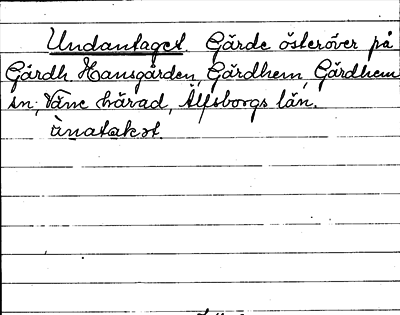 Undantaget. Gärde österöver på
Gärdh Hansgården, Gärdhem, Gärdhem
sn; Väne härad, Älfsborgs län.
ùnatakət.